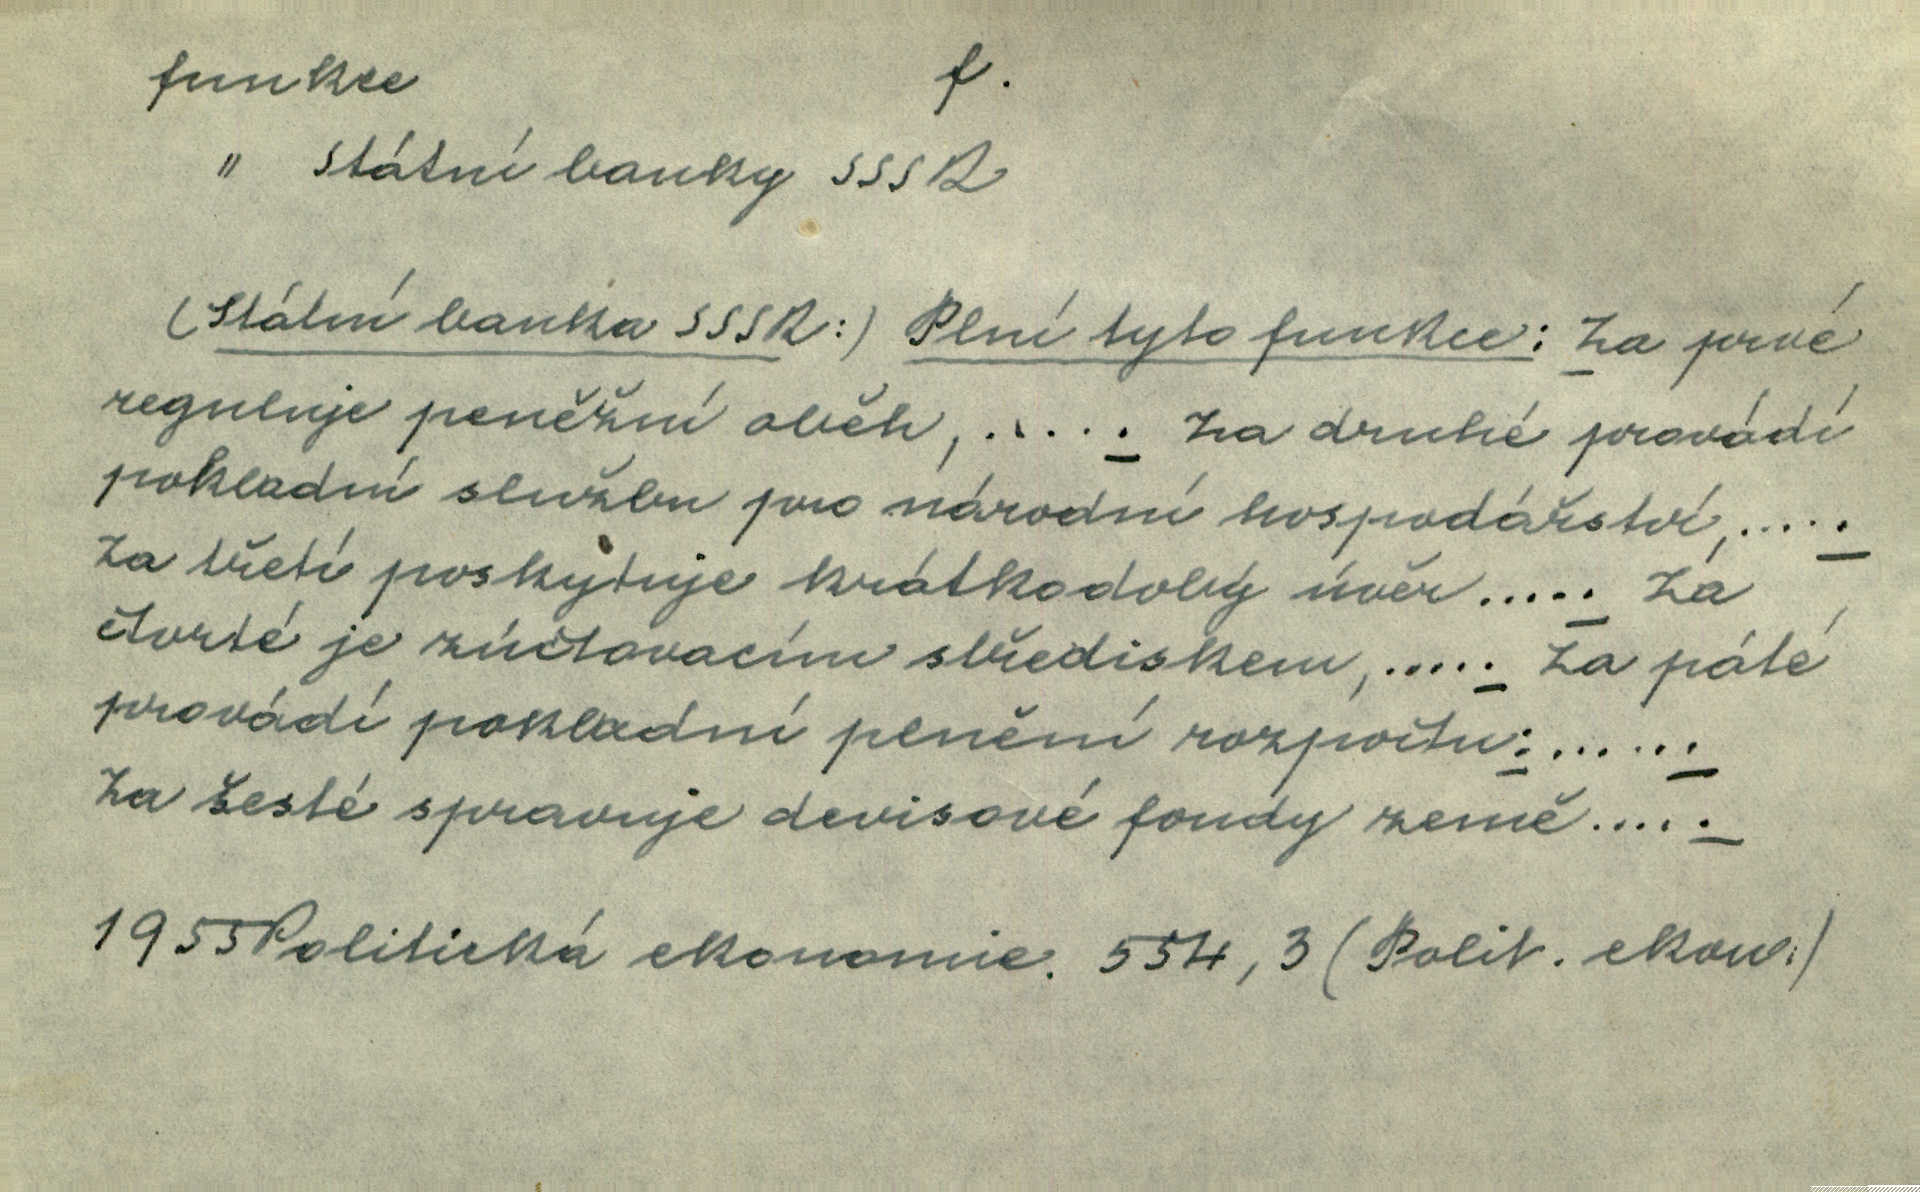 funkce f.
" státní banky SSSR
(Státní banka SSSR:) Plní tyto funkce: Za prvé
reguluje peněžní oběh, ..... Za druhé provádí
pokladní službu pro národní hospodářství, .....
Za třetí poskytuje krátkodobý úvěr ..... Za
čtvrté je zúčtovacím střediskem, ..... Za páté
provádí pokladní plnění rozpočtu: ......
Za šesté spravuje devisové fondy země .....
1955 Politická ekonomie. 554, 3 (Polit. ekon:)